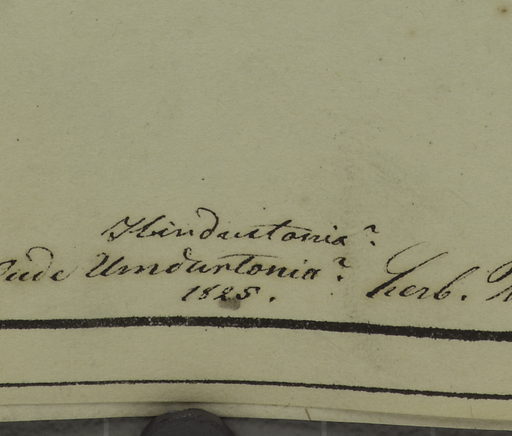 Hindustania?
Oude Umdurtonia? Herb.
1825.